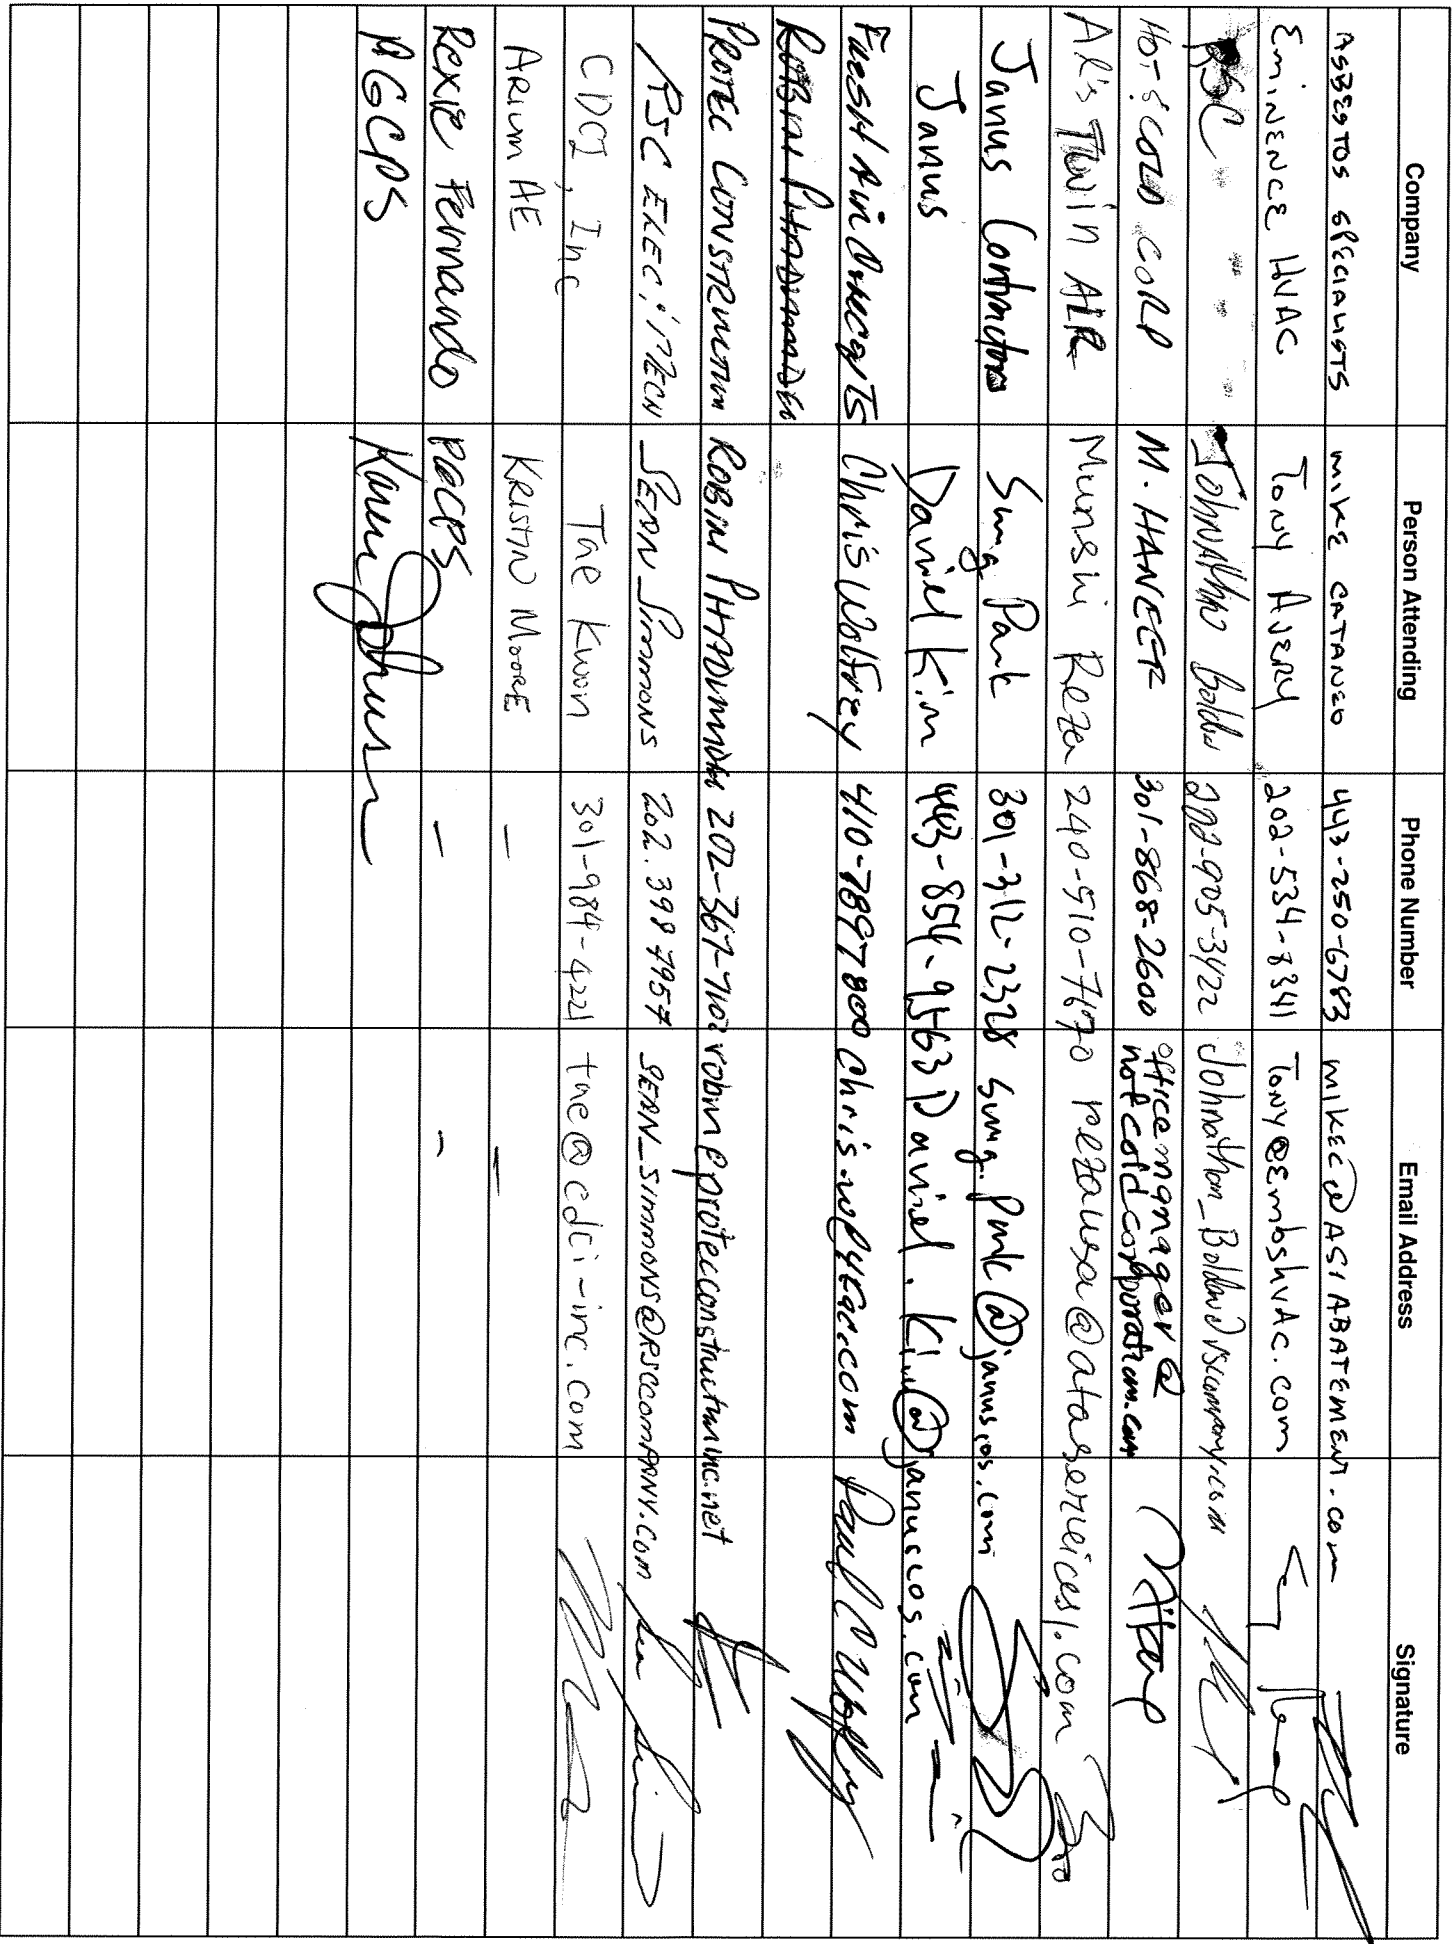 Company Person Attending Phone Number Email Address Signature
ASBESTOS SPECIALISTS MIKE CATANEO 443-250-6783 MIKEC@ASIABATEMENT.COM
EMINENCE HVAC TONY AVERY 202-534-8341 TONY@EMBOSHVAC.COM
RSC Johnathan Bolden 202-905-3422 Johnathon_Bolden@rsccompany.com
HOT & COLD CORP M. HANEEF 301-868-2600 officemanager@
hotcoldcorporation.com
Al's Twin AIR Munshi Reza 240-910-7670 rezausa@ataservices1.com
Janus Contractors Sung Park 301-312-2328 Sung.Park@januscos.com
Janus Daniel Kim 443-854-9563 Daniel.Kim@januscos.com
Fresh Air Concepts Chris Wolfrey 410-7897800
PROTEC CONSTRUCTION ROBIN 202-367-7102 robin@protecconstructioninc.net
RSC ELEC & MECH SEAN SIMMONS 202.398 7957 SEAN_SIMMONS@RSCCOMPANY.COM
CDCI, Inc Tae Kwon 301-984-4221 tae@cdci-inc.com
ARIUM AE KRISTIN MOORE – –
Rexie Fernando PGCPS – –
PGCPS Karen Johnson –